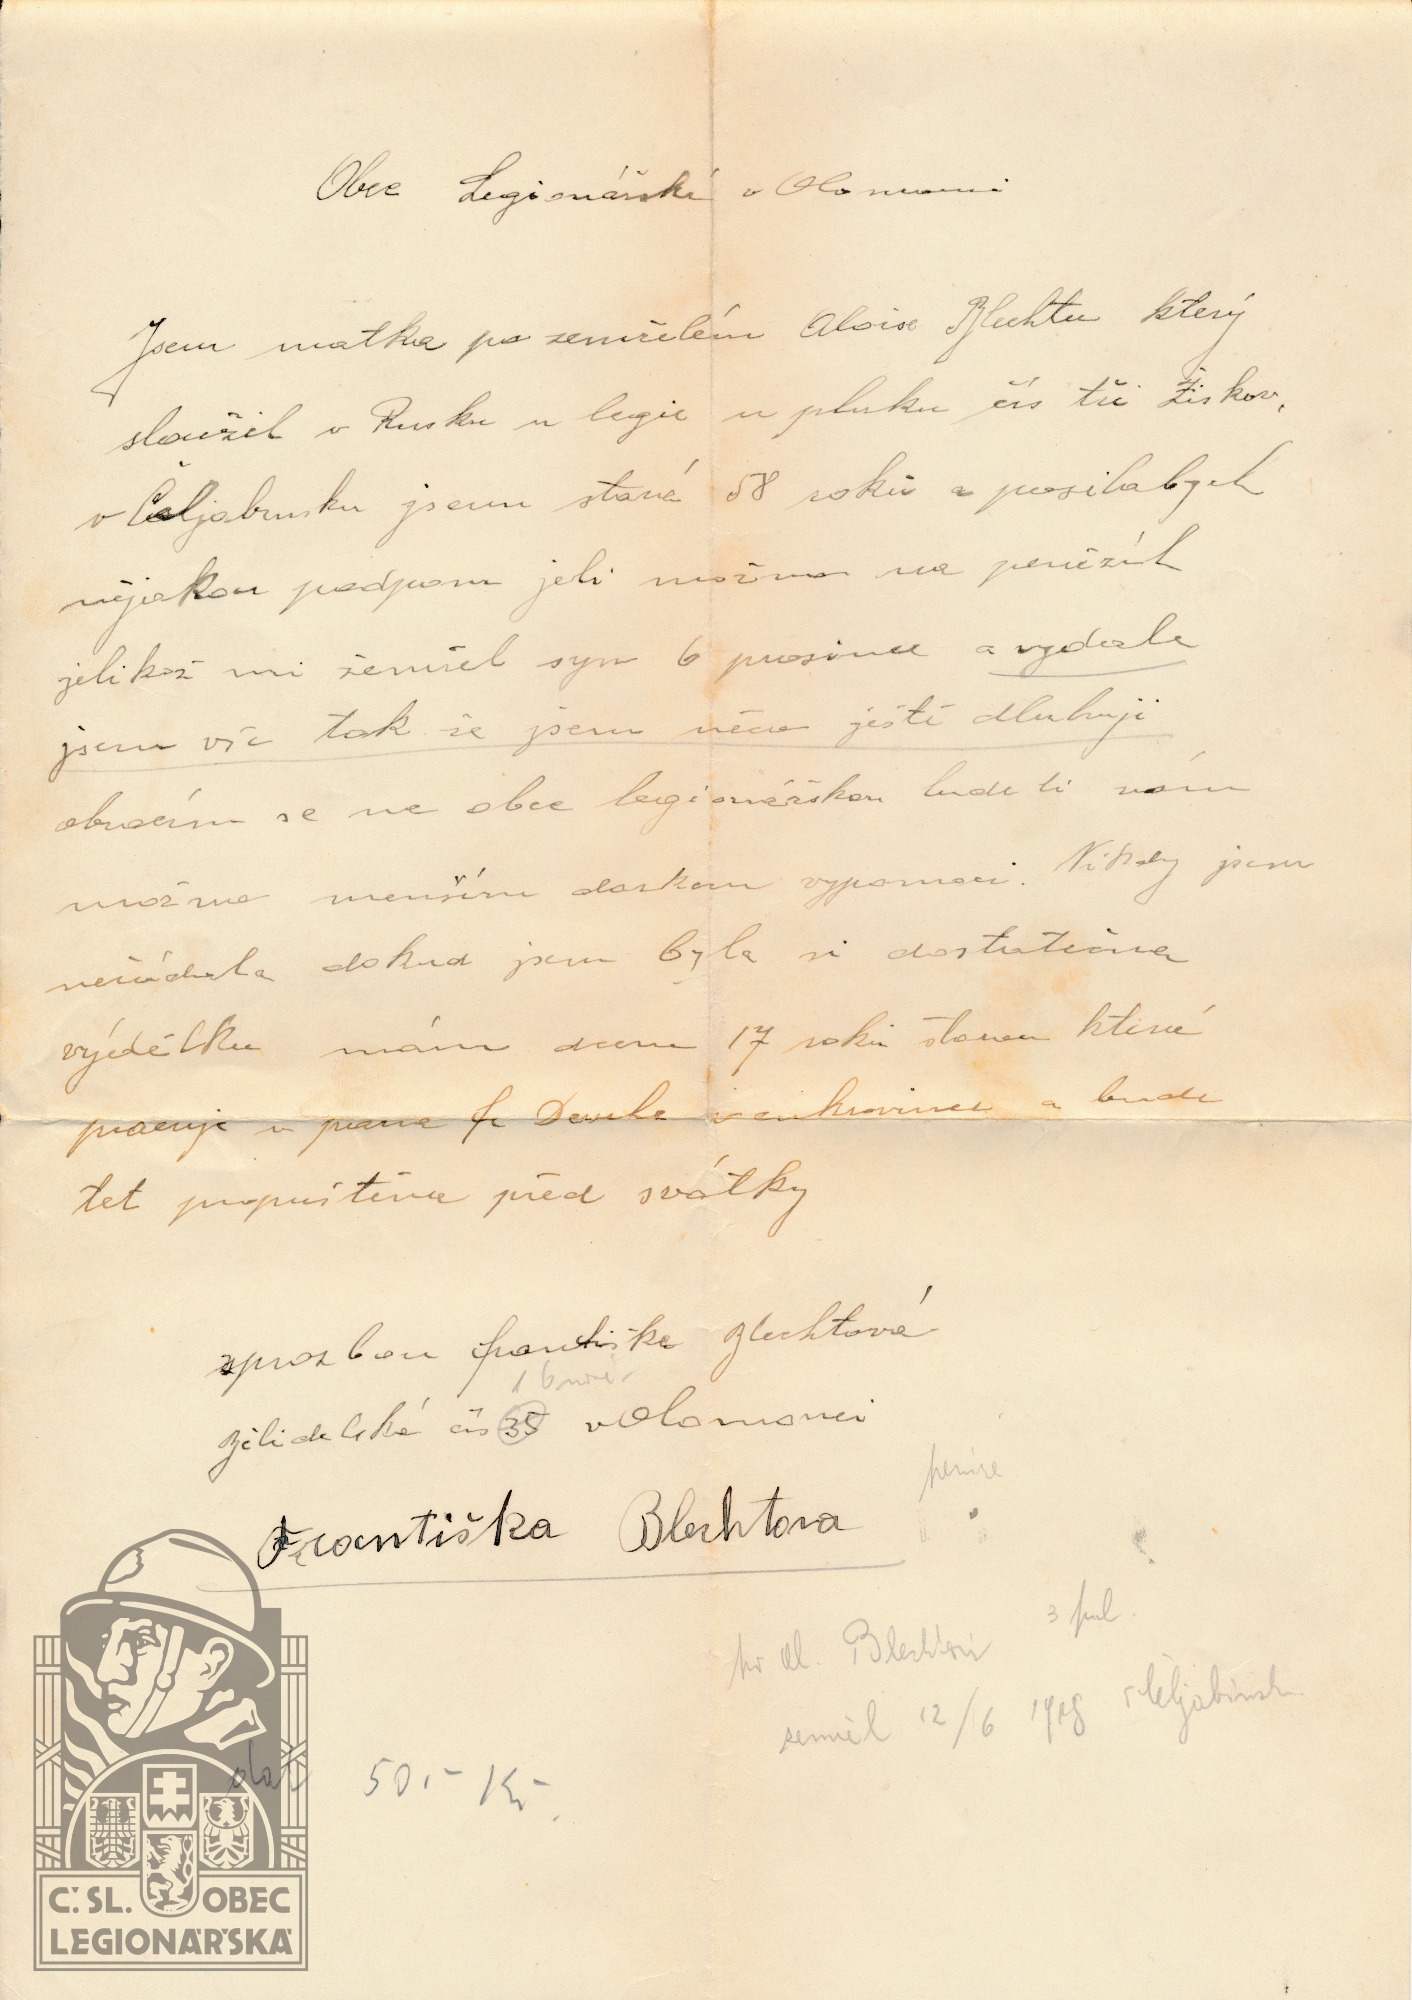 Obec Legionářská v Olomouci
Jsem matka po zemřelém Aloise Blechtu který
sloužil v Rusku u legie u pluku čís tři Žižkov,
v Čeljabnsku jsem stará 58 roků a prosilabych
nějakou podporu jeli možno na penězích
jelikož mi zemřel syn 6 prosince a vydala
jsem vše tak že jsem něco ještě dluhuji
obracím se na obec legionářskou budeli vám
možno menším darkem vypomoci. Nikdy jsem
nežádala dokud jsem byla si dostatečna
výdělku mám dceru 17 roků starou která
pracuje u pana Fr v cukrovince a bude
teť propuštěna před svátky
sprosbou františka Blechtová
Bělidelská čís 35 v Olomouci
Františka Blechtova
peníze
po Al. Blechtovi 3 pul.
zemřel 12/6 1918 v Čeljabinsku
dar 50.- Kč-.
Č. SL. OBEC
LEGIONÁŘSKÁ